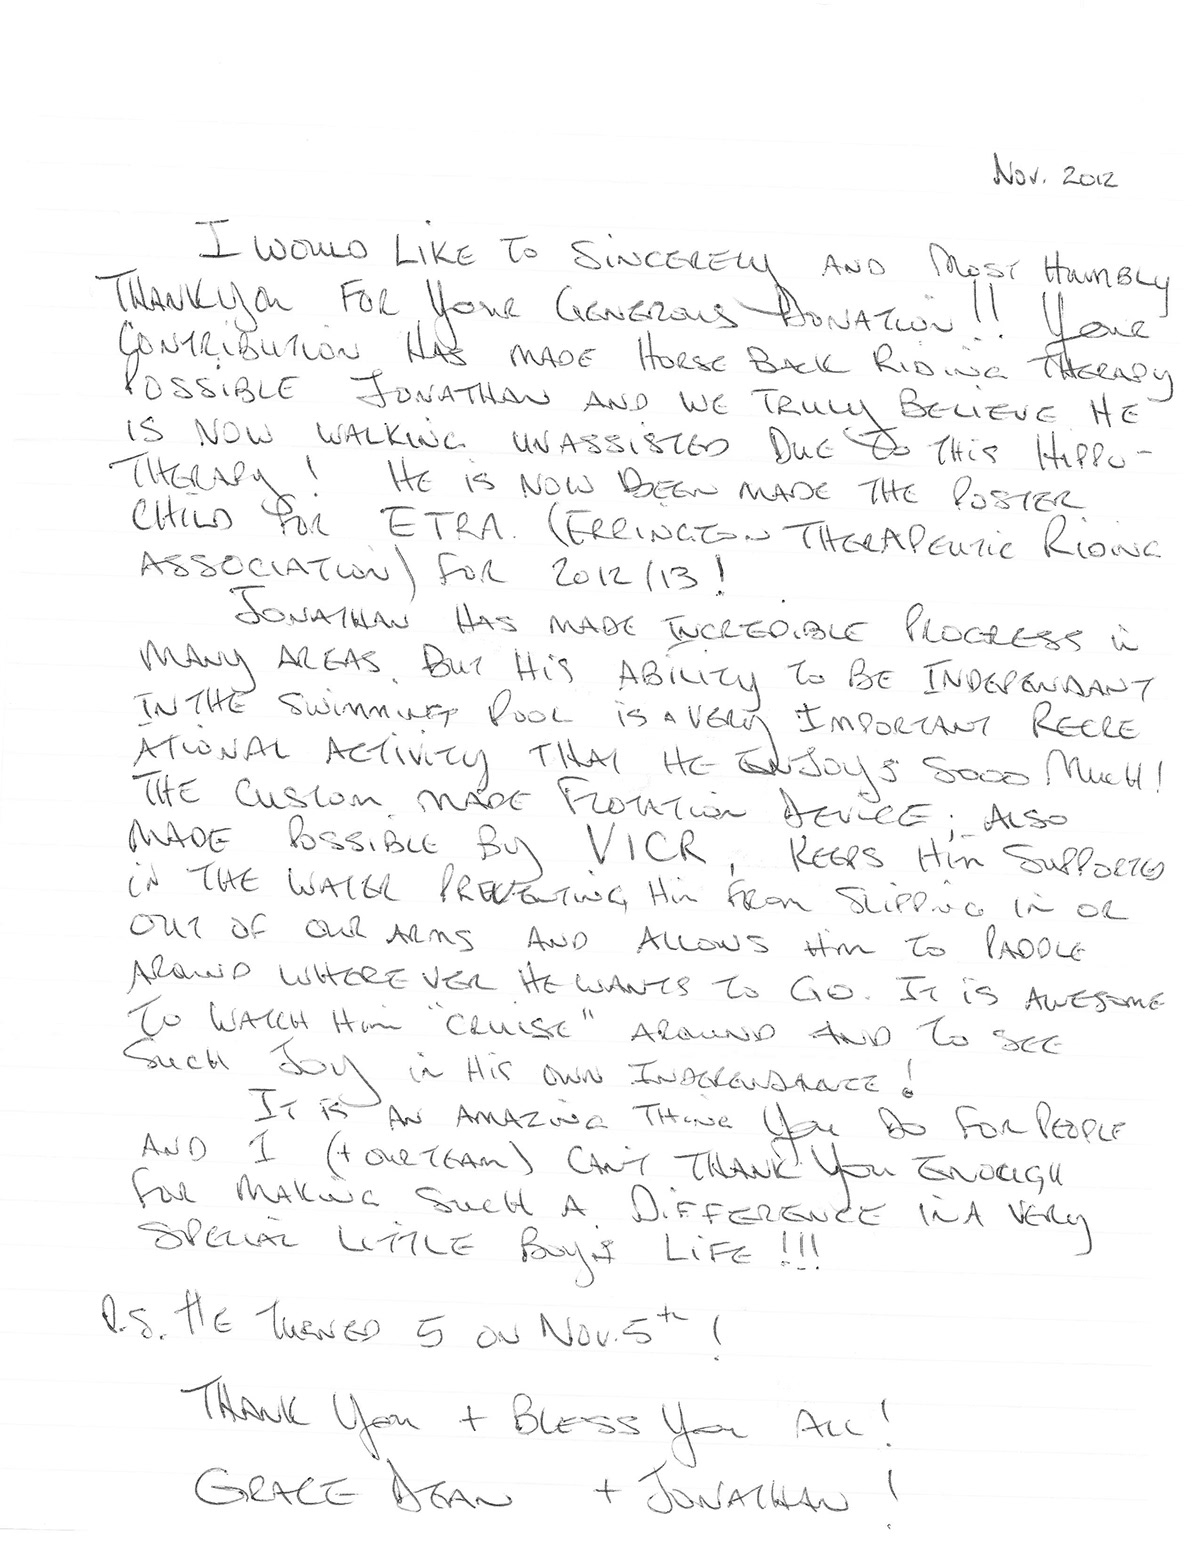 Nov. 2012
I WOULD LIKE TO SINCERELY AND MOST HUMBLY
THANKYOU FOR YOUR GENEROUS DONATION!! YOUR
CONTRIBUTION HAS MADE HORSE BACK RIDING THERAPY
POSSIBLE JONATHAN AND WE TRULY BELIEVE HE
IS NOW WALKING UNASSISTED DUE TO THIS HIPPO-
THERAPY! HE IS NOW BEEN MADE THE POSTER
CHILD FOR ETRA. (ERRINGTON THERAPEUTIC RIDING
ASSOCIATION) FOR 2012/13!
JONATHAN HAS MADE INCREDIBLE PROGRESS IN
MANY AREAS. BUT HIS ABILITY TO BE INDEPENDANT
IN THE SWIMMING POOL IS A VERY IMPORTANT RECRE
ATIONAL ACTIVITY THAT HE ENJOYS SOOO MUCH!
THE CUSTOM MADE FLOTATION DEVICE; ALSO
MADE POSSIBLE BY VICR, KEEPS HIM SUPPORTED
IN THE WATER PREVENTING HIM FROM SLIPPING IN OR
OUT OF OUR ARMS AND ALLOWS HIM TO PADDLE
AROUND WHERE EVER HE WANTS TO GO. IT IS AWESOME
TO WATCH HIM "CRUISE" AROUND AND TO SEE
SUCH JOY IN HIS OWN INDEPENDANCE!
IT IS AN AMAZING THING YOU DO FOR PEOPLE
AND I (+ OUR TEAM) CAN'T THANK YOU ENOUGH
FOR MAKING SUCH A DIFFERENCE IN A VERY
SPECIAL LITTLE BOYS LIFE!!!
P.S. HE TURNED 5 ON NOV. 5th!
THANK YOU + BLESS YOU ALL!
GRACE DEAN + JONATHAN!